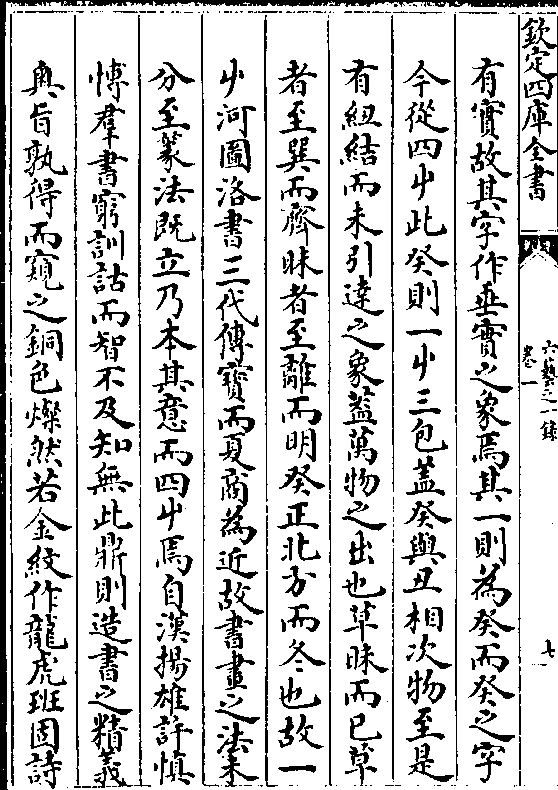 欽定四庫全書
六藝之一錄
卷一
七
有實故其字作垂實之象焉其一則為癸而癸之字
今從四屮此癸則一屮三包蓋癸與丑相次物至是
有紐結而未引達之象蓋萬物之出也草昧而已草
者至巽而齊昧者至離而明癸正北方而冬也故一
屮河圖洛書三代傳寶而夏商為近故書畫之法未
分至篆法既立乃本其意而四屮焉自漢揚雄許慎
愽羣書窮訓詁而智不及知無此鼎則造書之精義
奥旨孰得而窺之銅色爍然若金紋作龍虎班固詩